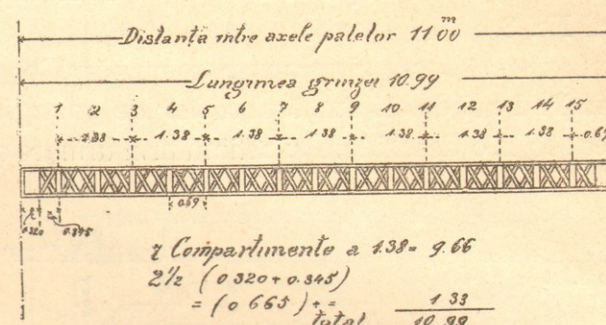 Distanța intre axele palelor 11 00 m
Lungimea grinzei 10.99
1 2 3 4 5 6 7 8 9 10 11 12 13 14 15
1.38 1.38 1.38 1.38 1.38 1.38 1.38
0.69
0.320 0.345
7 Compartimente a 1.38 = 9.66
2½ (0 320 + 0.345)
= (0 665) + = 1 33
total 10 99